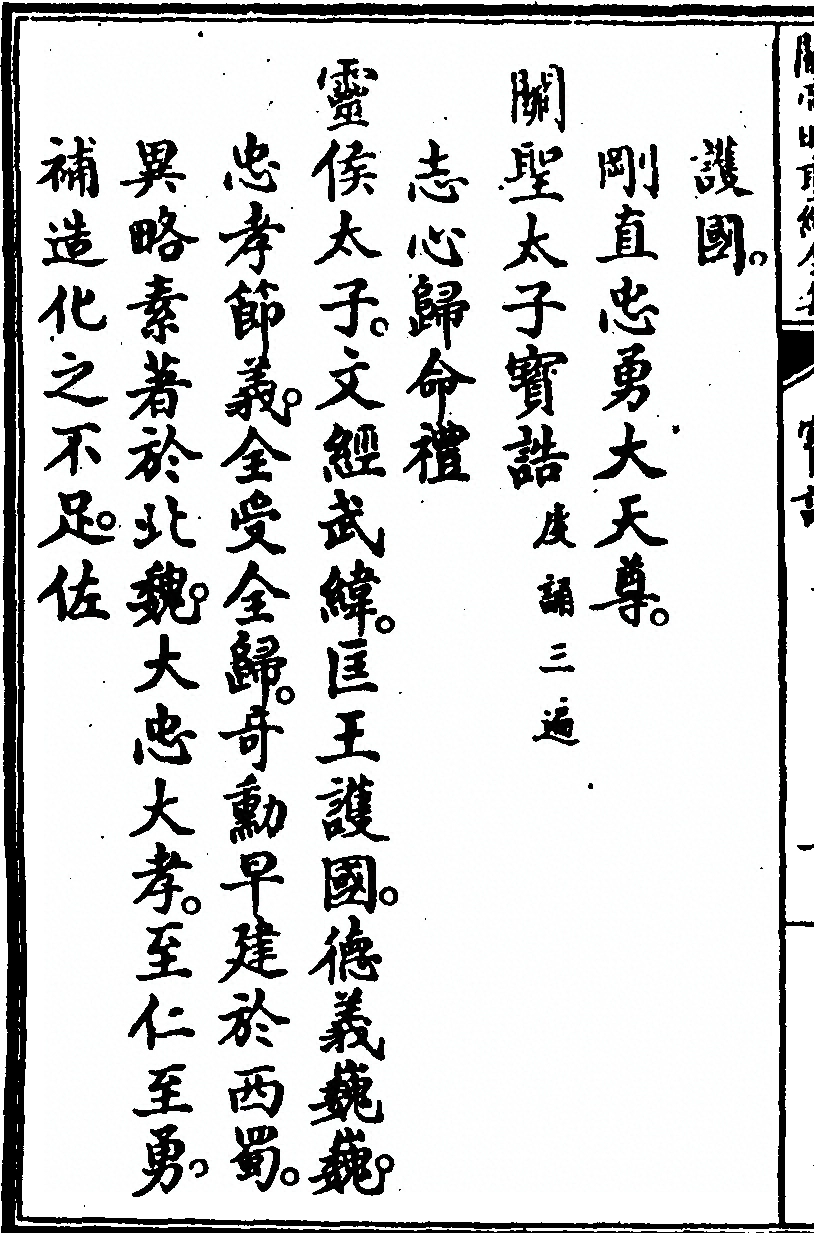 護國。
剛直忠勇大天尊。
關聖太子寶誥 虔誦三遍
志心歸命禮
靈侯太子。文經武緯。匡王護國。德義巍巍。
忠孝節義。全受全歸。竒勳早建於西蜀。
異略素著於北魏。大忠大孝。至仁至勇。
補造化之不足。佐